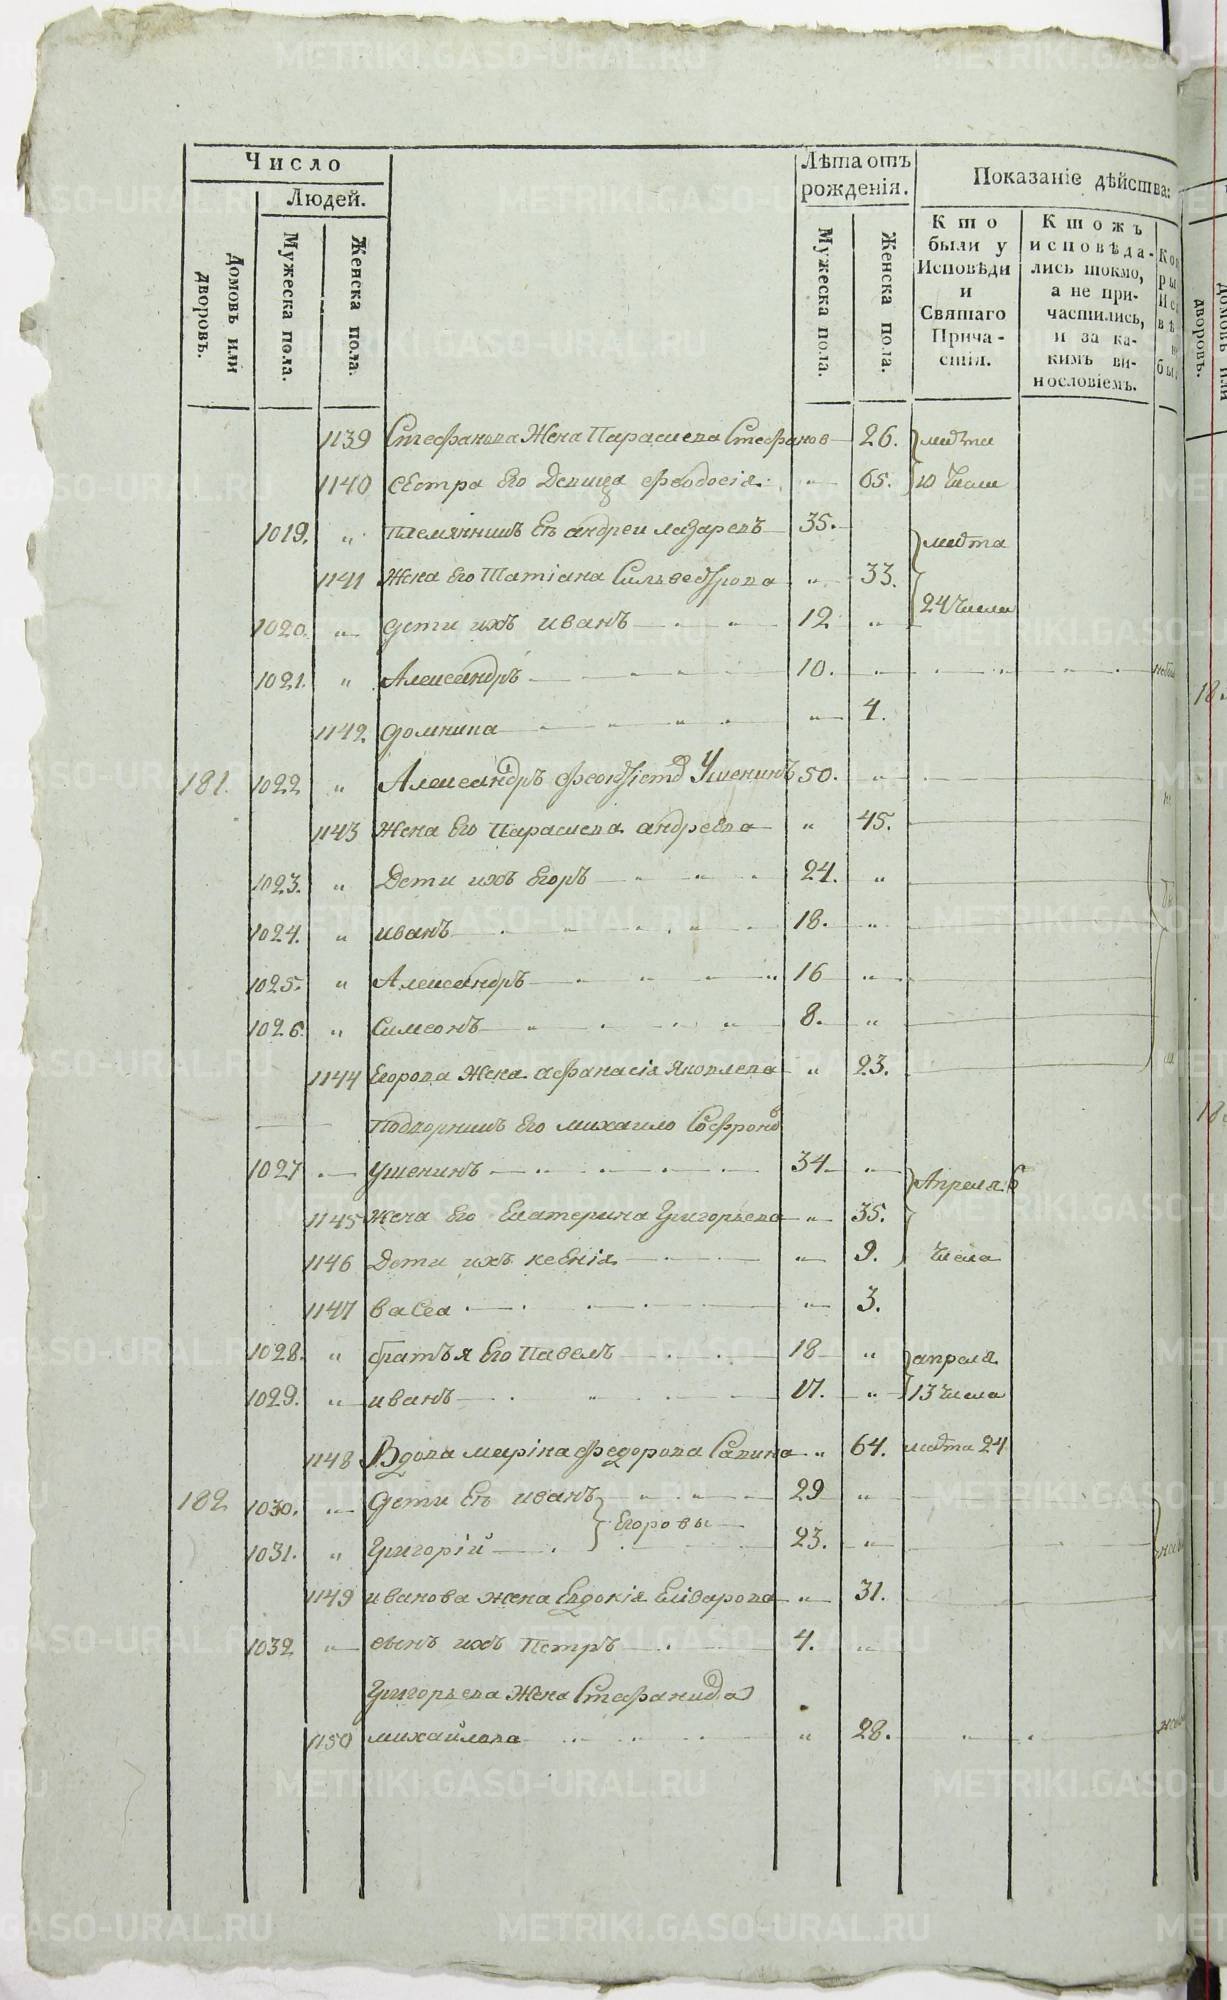 Число
Людей.
Домовъ или дворовъ.
Мужеска пола.
Женска пола.
Лѣта отъ рожденія.
Мужеска пола.
Женска пола.
Показаніе дѣйства:
Кто были у Исповѣди и Святаго Причастія.
Ктожъ исповѣдались токмо, а не причастились, и за какимъ винословіемъ.
1139 Стефанова Жена Параскева Стефанов — 26. марта
1140 сестра Его Девица Феодосія " 65. 10 Числа
1019. " племянникъ Ея андреи лазаревъ 35. марта
1141 Жена Его Татіана Сильвестрова " 33.
24 Числа
1020. " дети ихъ иванъ 12 "
1021. " Александръ 10. "
1142. домника " 4.
181. 1022 " Александръ Феоктістов Ушенинъ 50. "
1143 Жена Его Параскева андреева " 45.
1023. " Дети ихъ Егоръ 24. "
1024. " иванъ 18. "
1025. " Александръ 16 "
1026. " Симеонъ 8. "
1144 Егорова Жена афанасія Яковлева " 23.
Подворникъ Его михаило Софронов
1027 Ушенинъ 34 " Апреля 6
1145 Жена Его Екатерина Григорьева " 35.
1146 Дети ихъ ксенія " 9. Числа
1147 васса " 3.
1028. " братья Его Павелъ 18 " апреля
1029. " иванъ 17. " 13 Числа
1148 Вдова марина Федорова Савина " 64. марта 24
182 1030. " дети Ея иванъ 29 "
Егоровы
1031. " Григорій 23. "
1149 иванова жена Евдокія Елизарова " 31.
1032 " сынъ ихъ Петръ 4. "
Григорьева Жена Стефанида
1150 михайлова " 28.
METRIKI.GASO-URAL.RU